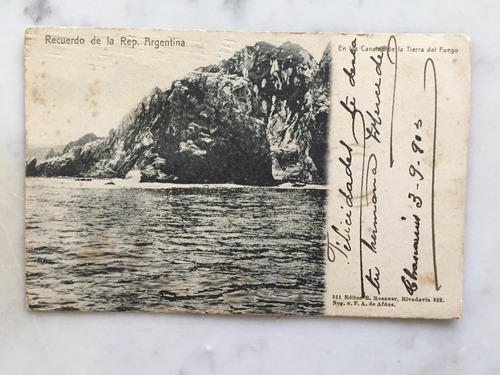 Recuerdo de la Rep. Argentina
En los Canales de la Tierra del Fuego
Felicidades te desea
tu hermana Mercedes
3-9-903
511 Editor R. Rosauer, Rivadavia 522.
Neg. o. F. A. de Afdos.